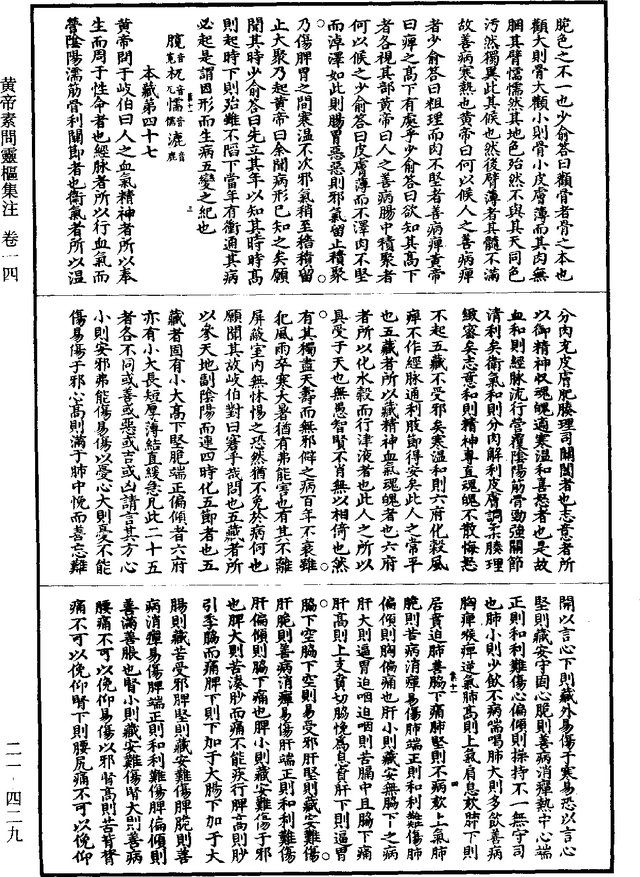 脆色之不一也少俞荅曰顴骨者骨之本也
顴大則骨大顴小則骨小皮膚薄而其肉無
䐃其臂懦懦然其地色殆然不與其天同色
汚然獨異此其候也然後臂薄者其髓不滿
故善病寒熱也黃帝曰何以候人之善病痺
者少俞荅曰粗理而肉不堅者善病痺黃帝
曰痺之高下有處乎少俞荅曰欲知其高下
者各視其部黃帝曰人之善病腸中積聚者
何以候之少俞荅曰皮膚薄而不澤肉不堅
而淖澤如此則腸胃惡惡則邪氣留止積聚
乃傷脾胃之間寒溫不次邪氣稍至稸積留
止大聚乃起黃帝曰余聞病形已知之矣願
聞其時少俞荅曰先立其年以知其時時高
則起時下則殆雖不陷下當年有衝通其病
必起是謂因形而生病五變之紀也
䐠音寬杌音兀懦音儒漉音鹿
本藏第四十七
黃帝問于岐伯曰人之血氣精神者所以奉
生而周于性命者也經脈者所以行血氣而
營陰陽濡筋骨利關節者也衛氣者所以溫
分肉充皮膚肥腠理司關闔者也志意者所
以御精神收魂魄適寒溫和喜怒者也是故
血和則經脈流行營覆陰陽筋骨勁強關節
清利矣衛氣和則分肉解利皮膚調柔腠理
緻密矣志意和則精神專直魂魄不散悔怒
不起五藏不受邪矣寒溫和則六府化穀風
痺不作經脈通利肢節得安矣此人之常平
也五藏者所以藏精神血氣魂魄者也六府
者所以化水穀而行津液者也此人之所以
具受于天也無愚智賢不肖無以相倚也然
有其獨盡天壽而無邪僻之病百年不衰雖
犯風雨卒寒大暑猶有弗能害也有其不離
屏蔽室內無怵惕之恐然猶不免於病何也
願聞其故岐伯對曰窘乎哉問也五藏者所
以參天地副陰陽而連四時化五節者也五
藏者固有小大高下堅脆端正偏傾者六府
亦有小大長短厚薄結直緩急凡此二十五
者各不同或善或惡或吉或凶請言其方心
小則安邪弗能傷易傷以憂心大則憂不能
傷易傷于邪心高則滿于肺中悗而善忘難
開以言心下則藏外易傷于寒易恐以言心
堅則藏安守固心脆則善病消癉熱中心端
正則和利難傷心偏傾則操持不一無守司
也肺小則少飲不病喘喝肺大則多飲善病
胸痺喉痺逆氣肺高則上氣肩息欬肺下則
居賁迫肺善脇下痛肺堅則不病欬上氣肺
脆則苦病消癉易傷肺端正則和利難傷肺
偏傾則胸偏痛也肝小則藏安無脇下之病
肝大則逼胃迫咽迫咽則苦膈中且脇下痛
肝高則上支賁切脇悗爲息賁肝下則逼胃
脇下空脇下空則易受邪肝堅則藏安難傷
肝脆則善病消癉易傷肝端正則和利難傷
肝偏傾則脇下痛也脾小則藏安難傷于邪
也脾大則苦湊䏚而痛不能疾行脾高則䏚
引季脇而痛脾下則下加于大腸下加于大
腸則藏苦受邪脾堅則藏安難傷脾脆則善
病消癉易傷脾端正則和利難傷脾偏傾則
善滿善脹也腎小則藏安難傷腎大則善病
腰痛不可以俛仰易傷以邪腎高則苦背膂
痛不可以俛仰腎下則腰尻痛不可以俛仰
黃帝素問靈樞集注 卷一四
二一·四二九